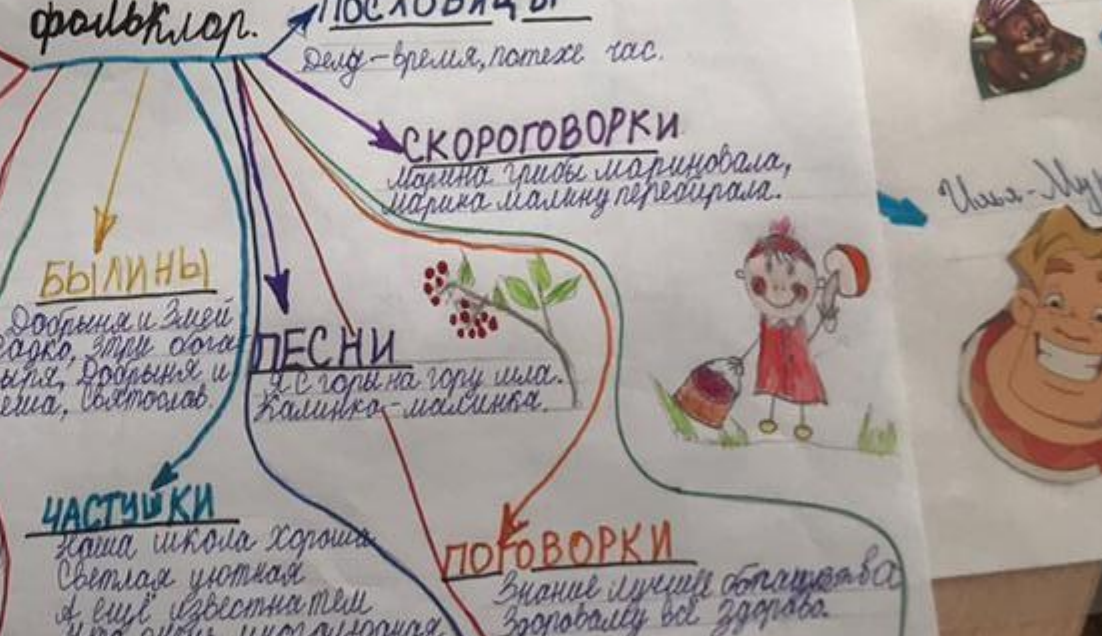 фольклор.
ПОСЛОВИЦЫ
Делу – время, потехе час.
СКОРОГОВОРКИ
Марина грибы мариновала,
марина малину перебирала.
Илья-Му
БЫЛИНЫ
Добрыня и Змей
Садко, 3 три бога
ыря, Добрыня и
еша, Святослав
ПЕСНИ
Я с горы на гору шла.
Калинка-малинка.
ЧАСТУШКИ
Наша школа хороша
Светлая уютная
А ещё известна тем
Что очень многолюдная
ПОГОВОРКИ
Знание лучше богатства
Здоровому всё здорово.